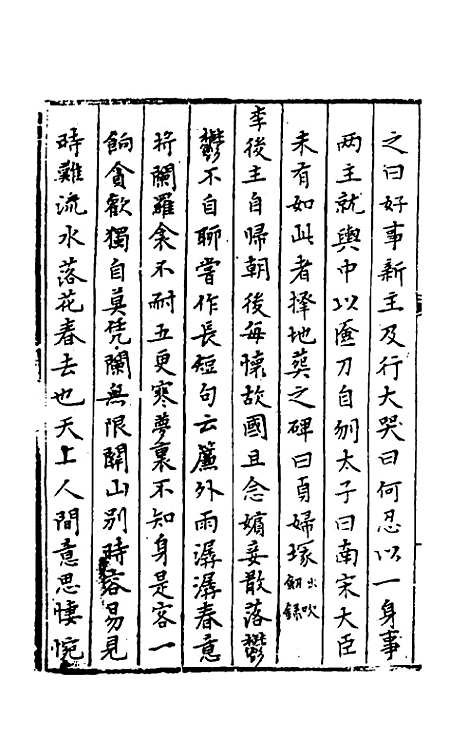 之曰好事新主及行大哭曰何忍以一身事
两主就輿中以匳刀自刎太子曰南宋大臣
未有如此者擇地葵之碑曰貞婦塚出吹劍錄
李後主自歸朝後每懷故國且念嬪妾散落鬱
鬱不自聊嘗作長短句云簾外雨潺潺春意
将闌羅衾不耐五更寒夢裏不知身是客一
餉貪歡獨自莫凭闌無限關山别時容易見
時難流水落花春去也天上人間意思悽惋